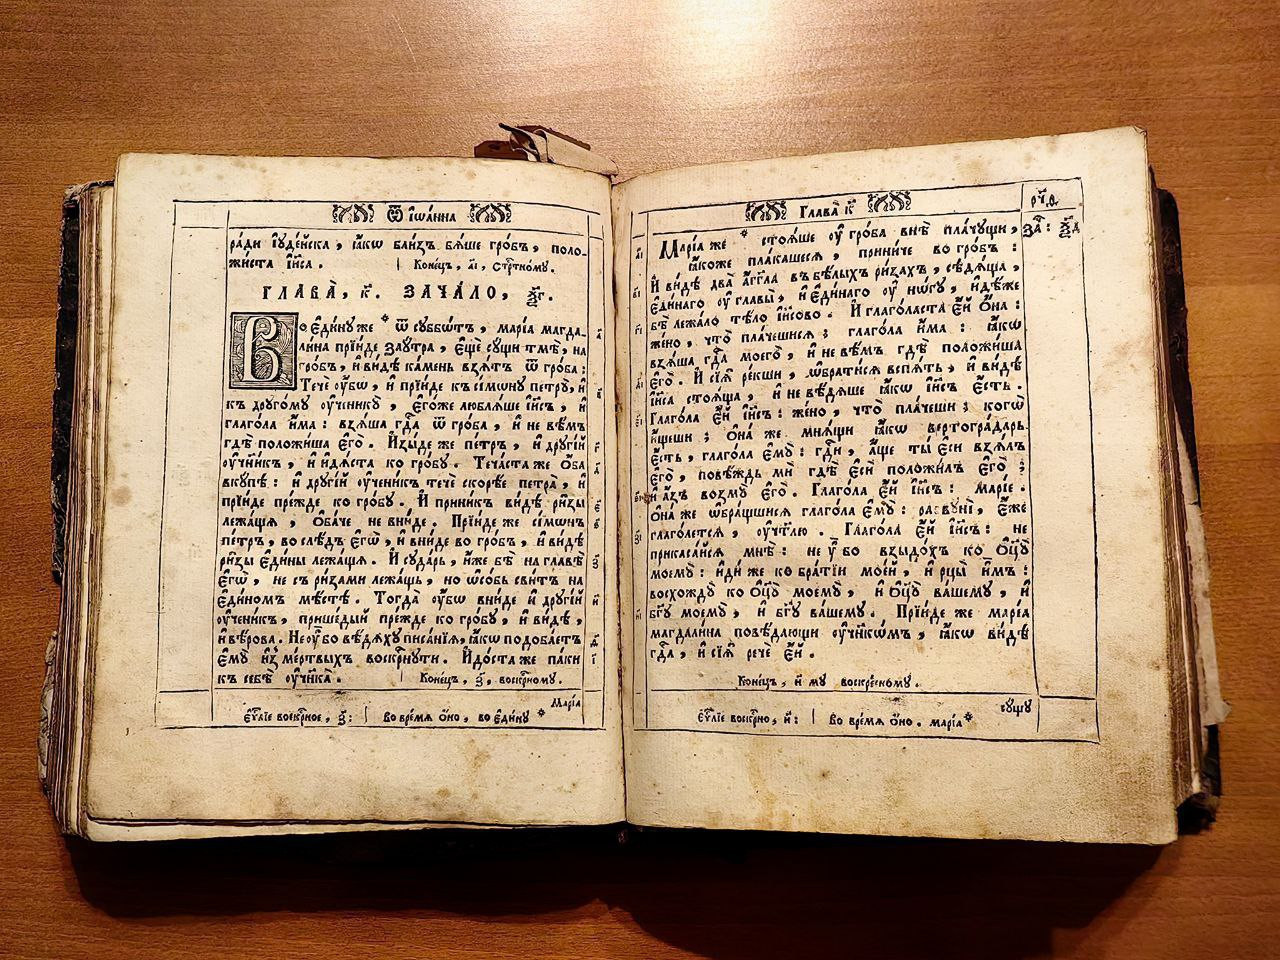 Ѿ Іѡа́нна
ра́ди Іꙋде́йска , ꙗ́кѡ бли́зъ бѧ́ше гро́бъ , поло-
жи́ста Іи҃са . Коне́цъ , а҃і , стр҇тно́мꙋ .
ГЛАВА̀ , к҃ . ЗАЧА́ЛО , ѯ҃г .
Во є҆ди́нꙋ же * ѿ сꙋббѡ́тъ , марі́а магда-
ли́на прїи́де заꙋ́тра , є҆щѐ сꙋ́щи тмѣ̀ , на
гро́бъ , и҆ ви́дѣ ка́мень взѧ́тъ ѿ гро́ба :
Течѐ ᲂу҆̀бѡ , и҆ прїи́де къ сі́мѡнꙋ петрꙋ̀ , и҆
къ дрꙋго́мꙋ ᲂу҆ченикꙋ̀ , є҆го́же люблѧ́ше Іи҃съ , и҆
глаго́ла и҆́ма : взѧ́ша гдⷭ҇а ѿ гро́ба , и҆ не вѣ́мъ
гдѣ̀ положи́ша є҆го̀ . И҆зы́де же пе́тръ , и҆ дрꙋгі́й
ᲂу҆чени́къ , и҆ и҆дѧ́ста ко гро́бꙋ . Теча́ста же ѻ҆́ба
вкꙋ́пѣ : и҆ дрꙋгі́й ᲂу҆чени́къ течѐ скорѣ́е петра̀ , и҆
прїи́де пре́жде ко гро́бꙋ . И҆ прини́къ ви́дѣ ри̑зы
лежа́щѧ , ѻ҆ба́че не вни́де . Прїи́де же сі́мѡнъ
пе́тръ , во слѣ́дъ є҆гѡ̀ , и҆ вни́де во гро́бъ , и҆ ви́дѣ
ри̑зы є҆ди̑ны лежа́щѧ . И҆ сꙋда́рь , и҆́же бѣ̀ на главѣ̀
є҆гѡ̀ , не съ ри́зами лежа́щь , но ѡ҆со́бь сви́тъ на
є҆ди́номъ мѣ́стѣ . Тогда̀ ᲂу҆̀бѡ вни́де и҆ дрꙋгі́й
ᲂу҆чени́къ , прише́дый пре́жде ко гро́бꙋ , и҆ ви́дѣ ,
и҆ вѣ́рова . Не ᲂу҆̀ бо вѣ́дѧхꙋ писа́нїѧ , ꙗ́кѡ подоба́етъ
є҆мꙋ̀ и҆з̾ ме́ртвыхъ воскрⷭ҇нꙋти . И҆до́ста же па́ки
къ себѣ̀ ᲂу҆чн҃ка . Коне́цъ , з҃ , воскрⷭ҇номꙋ .
Марі́а
Єѵⷢ҇лїе воскрⷭ҇ное , з҃ : Во вре́мѧ ѻ҆́но , во є҆ди́нꙋ *
Глава̀ к҃
рч҃д .
Марі́а же * стоѧ́ше ᲂу҆ гро́ба внѣ̀ пла́чꙋщи ,
За҄ : ѯ҃д
ꙗ́коже пла́кашесѧ , прини́че во гро́бъ :
И҆ ви́дѣ два̀ а҆́гг҃ла въ бѣ́лыхъ ри́захъ , сѣдѧ̑ща ,
є҆ди́наго ᲂу҆ главы̀ , и҆ є҆ди́наго ᲂу҆ но́гꙋ , и҆дѣ́же
бѣ̀ лежа́ло тѣ́ло і҆и҃сово . И҆ глаго́ласта є҆́й ѻ҆́на :
же́но , что̀ пла́чешисѧ ; глаго́ла и҆́ма : ꙗ́кѡ
взѧ́ша гдⷭ҇а моего̀ , и҆ не вѣ́мъ гдѣ̀ положи́ша
є҆го̀ . И҆ сїѧ̑ ре́кши , ѡ҆брати́сѧ вспѧ́ть , и҆ ви́дѣ
і҆и҃са стоѧ́ща , и҆ не вѣ́дѧше ꙗ́кѡ і҆и҃съ є҆́сть .
Глаго́ла є҆́й і҆и҃съ : же́но , что̀ пла́чеши ; когѡ̀
и҆́щеши ; ѻ҆на́ же мнѧ́щи ꙗ́кѡ вертогра́дарь
є҆́сть , глаго́ла є҆мꙋ̀ : гдⷭ҇и , а҆́ще ты̀ є҆сѝ взѧ́лъ
є҆го̀ , повѣ́ждь мѝ гдѣ̀ є҆сѝ положи́лъ є҆го̀ ;
и҆ а҆́зъ возмꙋ̀ є҆го̀ . Глаго́ла є҆́й і҆и҃съ : Марі́е .
ѻ҆на́ же ѡ҆бра́щшисѧ глаго́ла є҆мꙋ̀ : раввꙋнї , є҆́же
глаго́летсѧ , ᲂу҆чт҃лю . Глаго́ла є҆́й і҆и҃съ : не
прикаса́йсѧ мнѣ̀ : не ᲂу҆̀ бо взыдо́хъ ко ѻ҆ц҃ꙋ̀
моемꙋ̀ : и҆ди́ же ко бра́тїи мое́й , и҆ рцы̀ и҆̀мъ :
восхождꙋ̀ ко ѻ҆ц҃ꙋ̀ моемꙋ̀ , и҆ ѻ҆ц҃ꙋ̀ ва́шемꙋ , и҆
бг҃ꙋ моемꙋ̀ , и҆ бг҃ꙋ ва́шемꙋ . Прїи́де же марі́а
магдали́на повѣ́дающи ᲂу҆чн҃кѡ́мъ , ꙗ́кѡ ви́дѣ
гдⷭ҇а , и҆ сїѧ̑ речѐ є҆́й .
Коне́цъ , и҃ мꙋ воскр҇е́сномꙋ .
сꙋщꙋ
Єѵⷢ҇лїе воскрⷭ҇но , и҃ : Во вре́мѧ ѻ҆́но . марі́а *